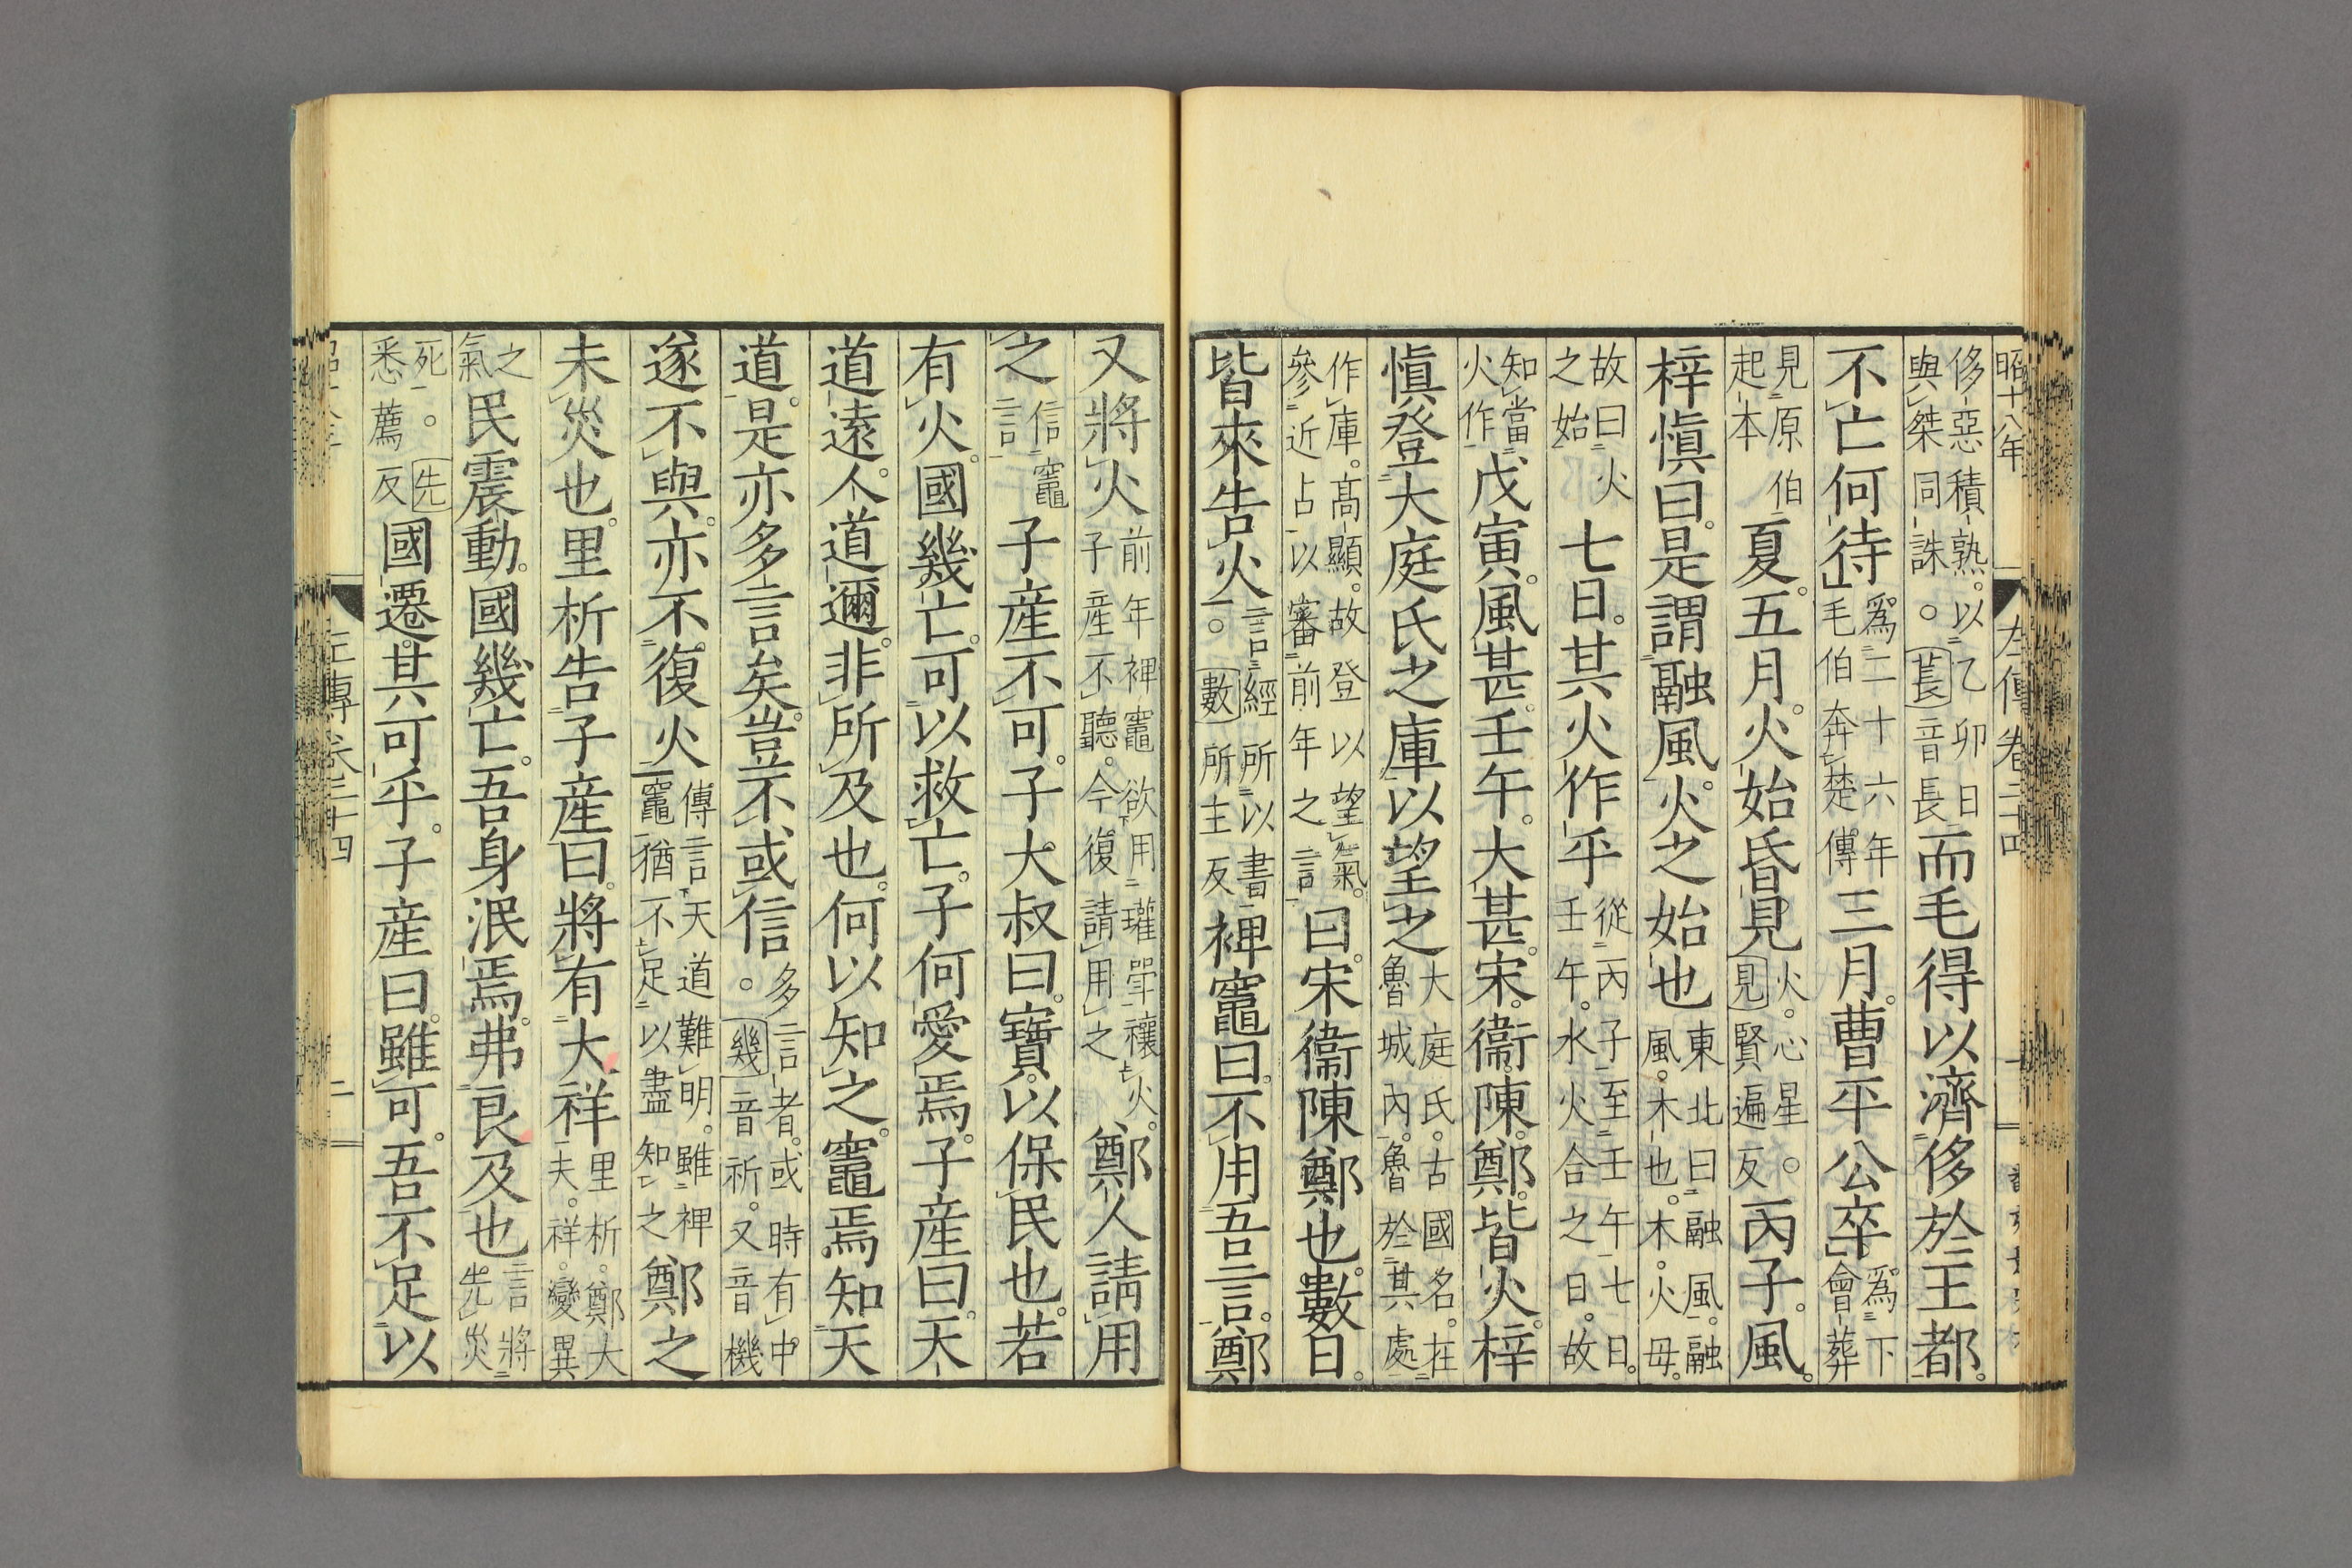 昭十八年　左傳卷二十四　一
侈惡積熟。以乙卯日與桀同誅。○萇音長而毛得以濟侈於王都。
不亡何待爲二十六年毛伯奔楚傳三月。曹平公卒爲下會葬
見原伯起本夏。五月。火始昏見火。心星。○見賢遍反丙子。風。
梓愼曰。是謂融風。火之始也東北曰融風。融風。木也。木。火母。
故曰火之始七日。其火作乎從丙子至壬午七日。壬午。水火合之日。故
知當火作戊寅。風甚。壬午。大甚。宋。衞。陳。鄭。皆火。梓
愼登大庭氏之庫以望之大庭氏。古國名。在魯城內。魯於其處
作庫。高顯。故登以望氣。參近占以審前年之言曰。宋衞陳鄭也。數日。
皆來告火言經所以書。○數所主反裨竈曰。不用吾言。鄭
又將火前年裨竈欲用瓘斝禳火。子產不聽。今復請用之鄭人請用
之信竈言子產不可。子大叔曰。寶。以保民也。若
有火。國幾亡。可以救亡。子何愛焉。子產曰。天
道遠。人道邇。非所及也。何以知之。竈焉知天
道。是亦多言矣。豈不或信多言者。或時有中。○幾音祈。又音機
遂不與。亦不復火傳言天道難明。雖裨竈猶不足以盡知之鄭之
未災也。里析告子產曰。將有大祥里析。鄭大夫。祥。變異
之氣民震動。國幾亡。吾身泯焉。弗良及也言將先災
死。○先悉薦反國遷。其可乎。子產曰。雖可。吾不足以